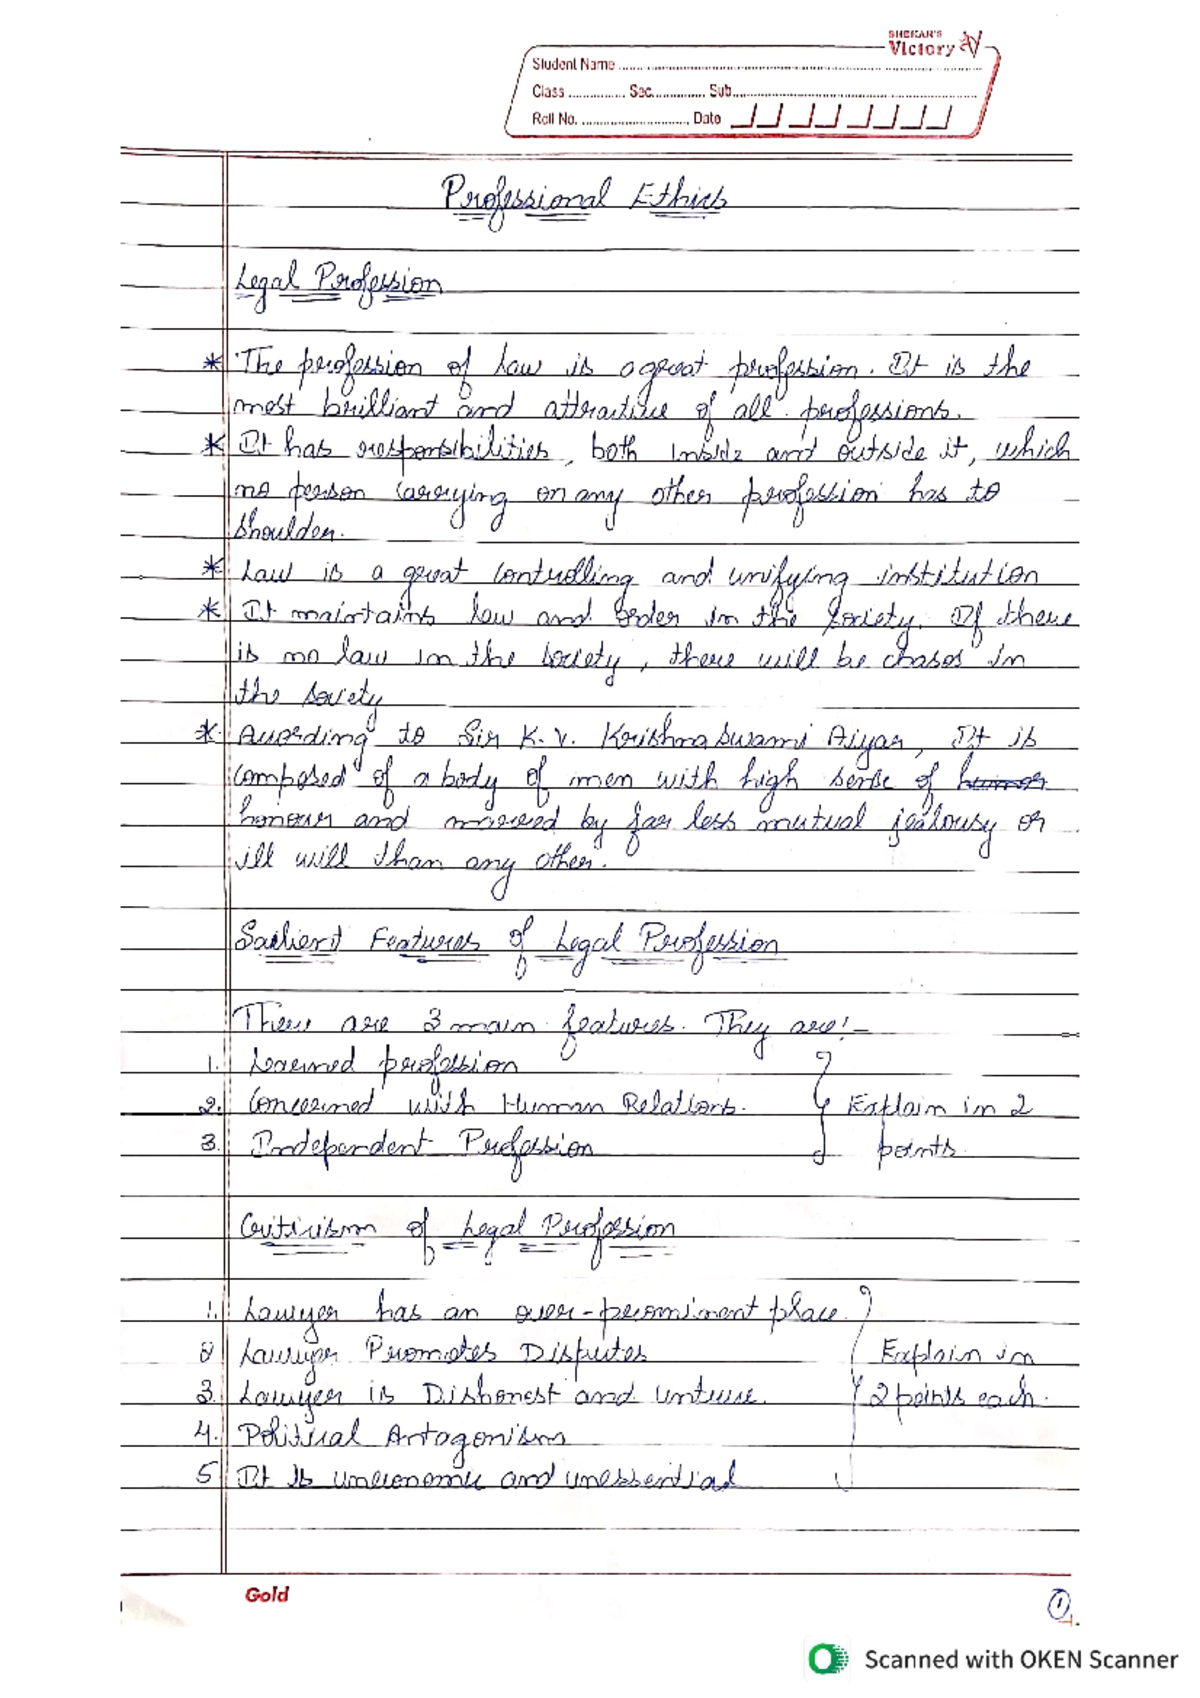 SHEKAR'S
Victory
Student Name
Class Sec. Sub
Roll No. Date
Professional Ethics
Legal Profession
* The profession of Law is a great profession. It is the
most brilliant and attractive of all professions.
* It has responsibilities, both inside and outside it, which
no person carrying on any other profession has to
shoulder.
* Law is a great controlling and unifying institution
* It maintains law and order in the society. If there
is no law in the society, there will be chaos in
the society
* According to Sir K.V. Krishna Swami Aiyar, It is
composed of a body of men with high sense of
honour and marred by far less mutual jealousy or
ill will than any other.
Sailient Features of Legal Profession
There are 3 main features. They are:-
1. Learned profession
2. Concerned with Human Relations. Explain in 2
3. Independent Profession points.
Criticism of Legal Profession
1. Lawyer has an over-prominent place.
2 Lawyer Promotes Disputes Explain in
3. Lawyer is Dishonest and untrue. 2 points each.
4. Political Antagonism
5 It is uneconomic and unessential
Gold
1
Scanned with OKEN Scanner